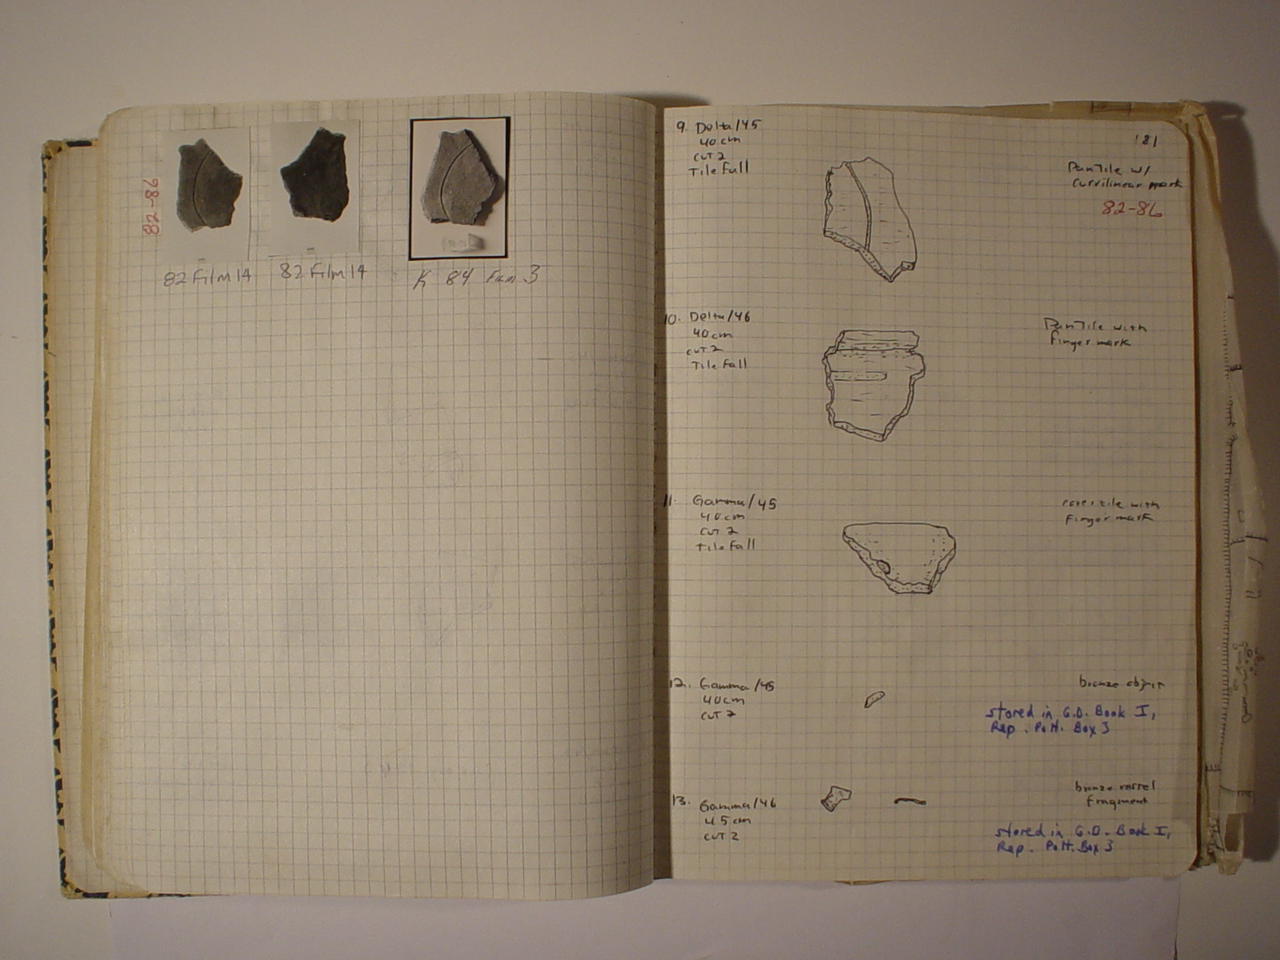 82-86
82 Film 14
82 Film 14
K 84 Film 3
181
9. Delta/45
40 cm
CUT 2
Tile Fall
Pan Tile w/
curvilinear mark
82-86
10. Delta/46
40 cm
CUT 2
Tile Fall
Pan Tile with
finger mark
11. Gamma/45
40 cm
CUT 2
Tile Fall
cover tile with
finger mark
12. Gamma/45
40 cm
CUT 2
bronze object
stored in G.D. Book I,
Rep. Pott. Box 3
13. Gamma/46
45 cm
CUT 2
bronze vessel
fragment
stored in G.D. Book I,
Rep. Pott. Box 3